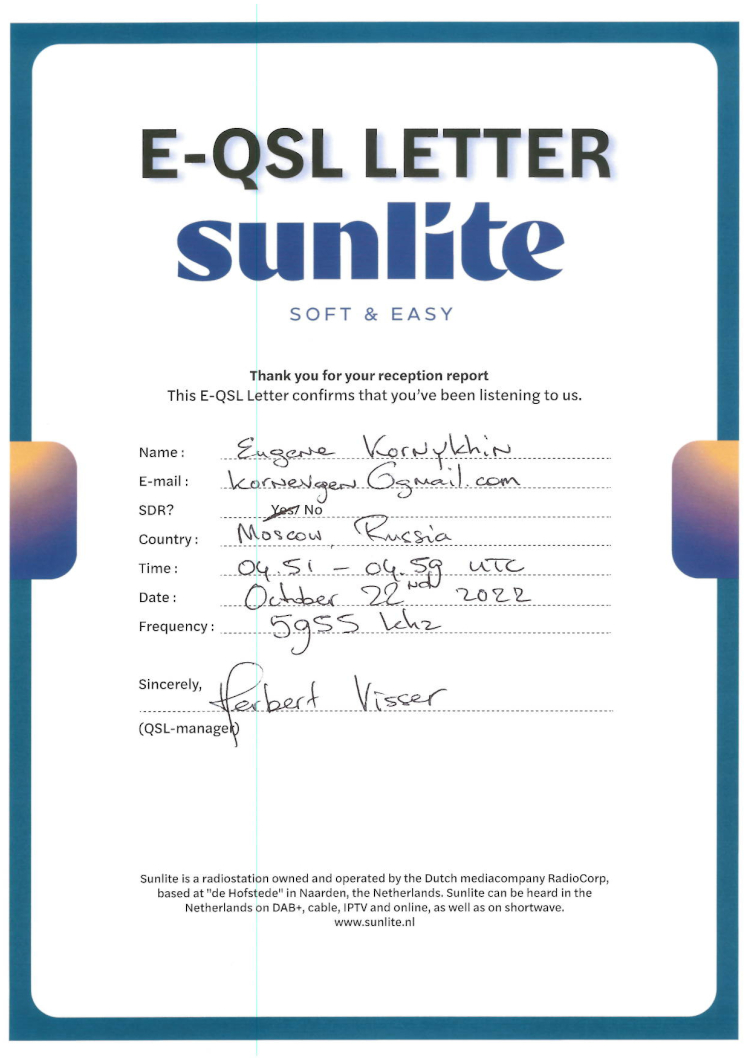 E-QSL LETTER
sunlite
SOFT & EASY
Thank you for your reception report
This E-QSL Letter confirms that you've been listening to us.
Name : Eugene Kornykhin
E-mail : kornevgen@gmail.com
SDR? Yes/ No
Country : Moscow, Russia
Time : 04.51 - 04.59 UTC
Date : October 22nd 2022
Frequency : 5955 khz
Sincerely, Herbert Visser
(QSL-manager)
Sunlite is a radiostation owned and operated by the Dutch mediacompany RadioCorp,
based at "de Hofstede" in Naarden, the Netherlands. Sunlite can be heard in the
Netherlands on DAB+, cable, IPTV and online, as well as on shortwave.
www.sunlite.nl